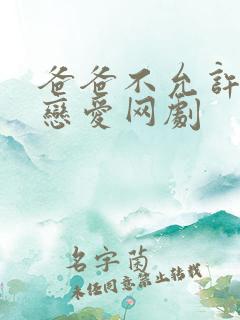 爸爸不允许
戀愛网劇
名字茵
未经同意禁止转载